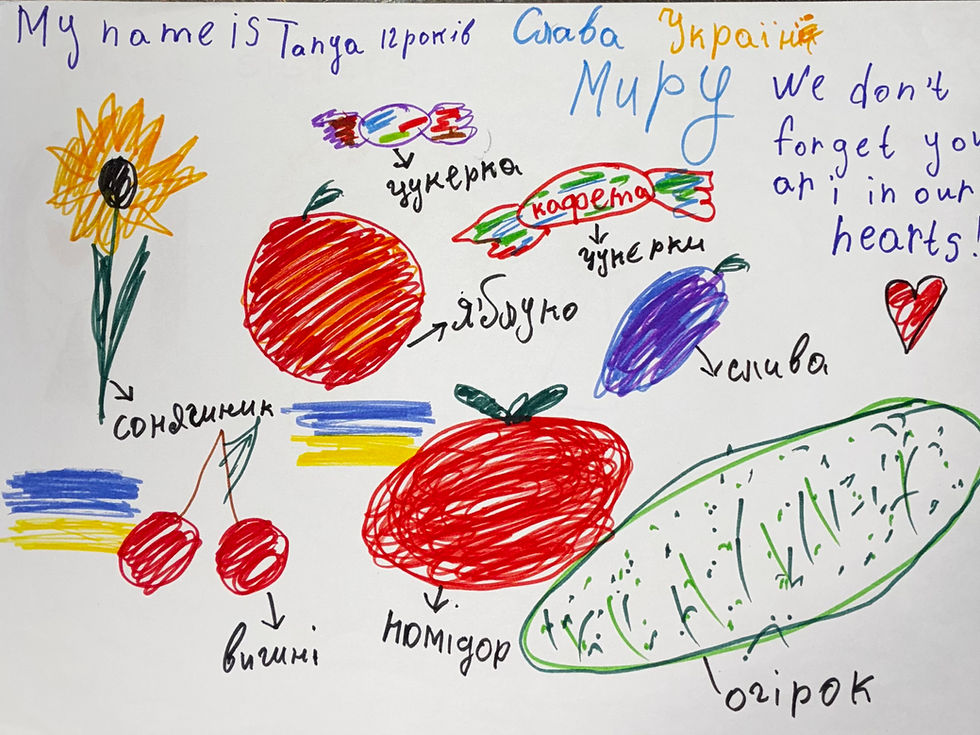 My name is Tanya 12 років Слава Україні
Миру
We don't
forget you
ari in our
hearts!
цукерка
кафета
цукерки
яблуко
слива
сонячник
вишні
помідор
огірок